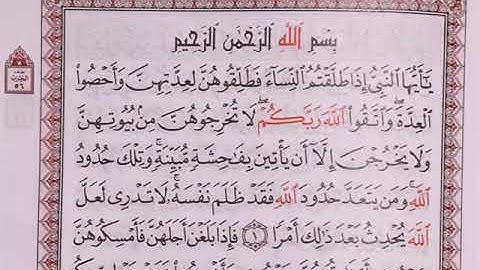 بِسْمِ اللَّهِ الرَّحْمَٰنِ الرَّحِيمِ
يَا أَيُّهَا النَّبِيُّ إِذَا طَلَّقْتُمُ النِّسَاءَ فَطَلِّقُوهُنَّ لِعِدَّتِهِنَّ وَأَحْصُوا
الْعِدَّةَ ۖ وَاتَّقُوا اللَّهَ رَبَّكُمْ ۖ لَا تُخْرِجُوهُنَّ مِنْ بُيُوتِهِنَّ
وَلَا يَخْرُجْنَ إِلَّا أَنْ يَأْتِينَ بِفَاحِشَةٍ مُبَيِّنَةٍ ۚ وَتِلْكَ حُدُودُ
اللَّهِ ۚ وَمَنْ يَتَعَدَّ حُدُودَ اللَّهِ فَقَدْ ظَلَمَ نَفْسَهُ ۚ لَا تَدْرِي لَعَلَّ
اللَّهَ يُحْدِثُ بَعْدَ ذَٰلِكَ أَمْرًا ۝١ فَإِذَا بَلَغْنَ أَجَلَهُنَّ فَأَمْسِكُوهُنَّ